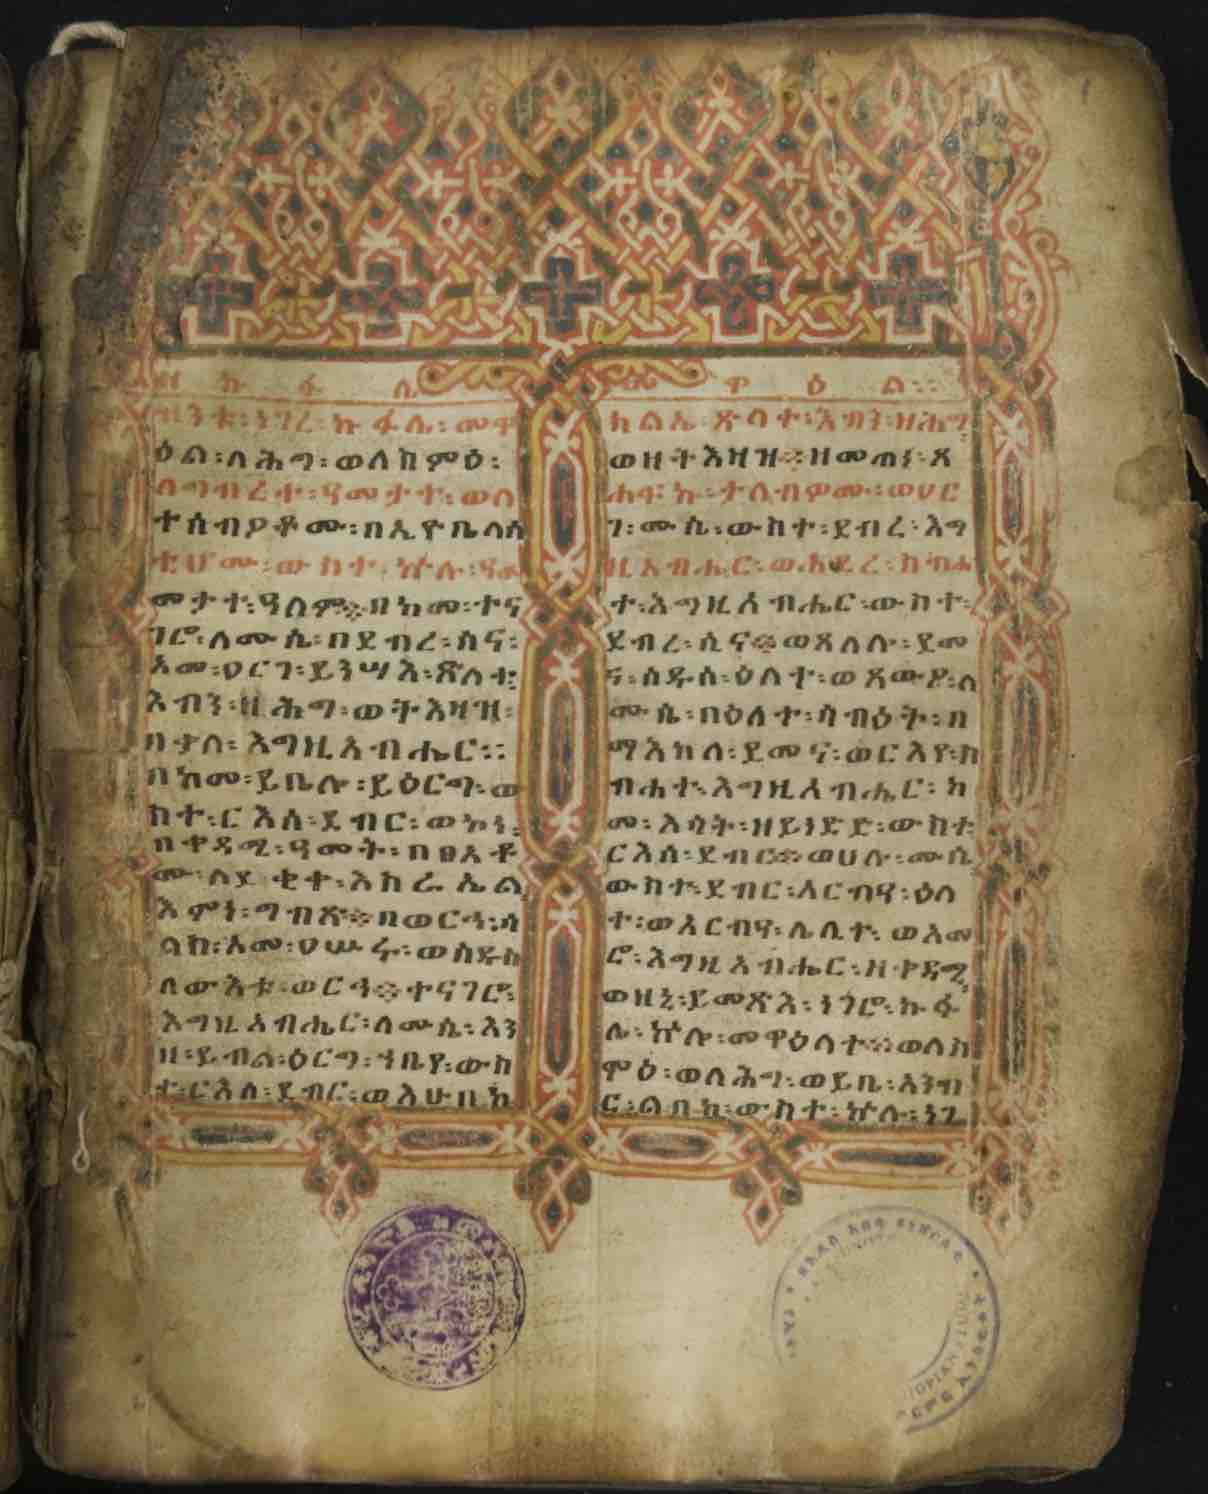 ዝ ኩ ፋ ሊ መ ዋ ዕ ል ።
ዝንቱ ፡ ነገረ ፡ ኩ ፋሌ ፡ መዋ
ዕል ፡ ለሕግ ፡ ወለከምዕ ፡
ለግብረተ ፡ ዓመታተ ፡ ወለ
ተሰብዖቶሙ ፡ በኢዮቤላሳ
ቲሆሙ ፡ ውከተ ፡ ኵሉ ፡ ዓ
መታተ ፡ ዓለም ፨ በከመ ፡ ተና
ገሮ ፡ ለሙሴ ፡ በደብረ ፡ ሲና ፡
አመ ፡ ዐርገ ፡ ይንሣእ ፡ ጽላተ ፡
እብን ፡ ዘሕግ ፡ ወትእዛዝ ፡
በቃለ ፡ እግዚአብሔር ።
በከመ ፡ ይቤሎ ፡ ይዕርግ ፡ ው
ከተ ፡ ርእሰ ፡ ደብር ፡ ወኮነ ፡
በቀዳሚ ፡ ዓመት ፡ በፀአቶ
ሙ ፡ ለደቂቀ ፡ እከራኤል
እምነ ፡ ግብጽ ፨ በወርኅ ፡ ሣ
ልከ ፡ አመ ፡ ዐሡሩ ፡ ወሰዱሱ
ለውእቱ ፡ ወርኅ ፨ ተናገሮ ፡
እግዚአብሔር ፡ ለሙሴ ፡ እን
ዘ ፡ ይብል ፡ ዕርግ ፡ ኀቤየ ፡ ውከ
ተ ፡ ርእሰ ፡ ደብር ፡ ወእሁበከ
ክልኤ ፡ ጽላተ ፡ እብን ፡ ዘሕግ ፡
ወዘትእዛዝ ፨ ዘመጠነ ፡ ጸ
ሐፍኩ ፡ ታለብዎሙ ፡ ወዐር
ገ ፡ ሙሴ ፡ ውከተ ፡ ደብረ ፡ እግ
ዚአብሔር ፡ ወኀደረ ፡ ከብሐ
ተ ፡ እግዚአብሔር ፡ ውከተ ፡
ደብረ ፡ ሲና ፨ ወጸለሎ ፡ ደመ
ና ፡ ሰዱሰ ፡ ዕለተ ፡ ወጸውዖ ፡ ለ
ሙሴ ፡ በዕለተ ፡ ሳብዕት ፡ በ
ማእከለ ፡ ደመና ፡ ወርእየ ፡ ከ
ብሐተ ፡ እግዚአብሔር ፡ ከ
መ ፡ እሳት ፡ ዘይነድድ ፡ ውከተ
ርእሰ ፡ ደብር ፨ ወሀሎ ፡ ሙሴ
ውከተ ፡ ደብር ፡ አርብዓ ፡ ዕለ
ተ ፡ ወአርብዓ ፡ ሌሊተ ፡ ወአመ
ሮ ፡ እግዚአብሔር ፡ ዘቀዳሚ
ወዘኒ ፡ ይመጽእ ፡ ነጎሮ ፡ ኩፋ
ሌ ፡ ኵሎ ፡ መዋዕላተ ፨ ወለከ
ምዕ ፡ ወለሕግ ፡ ወይቤ ፡ አንብ
ር ፡ ልበከ ፡ ውስተ ፡ ኵሉ ፡ ነገ